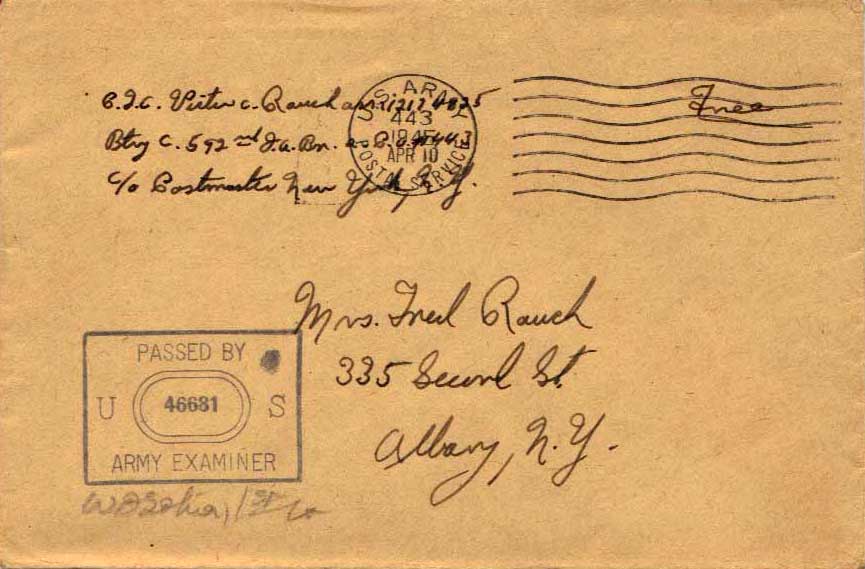 Victor C. Rauch
Btry C. 592nd F.A. Bn. A.P.O. # 443
c/o Postmaster New York, N.Y.
U.S. ARMY
443
1945
APR 10
POSTAL SERVICE
Free
Mrs. Fred Rauch
335 Second St.
Albany, N.Y.
PASSED BY
U 46681 S
ARMY EXAMINER